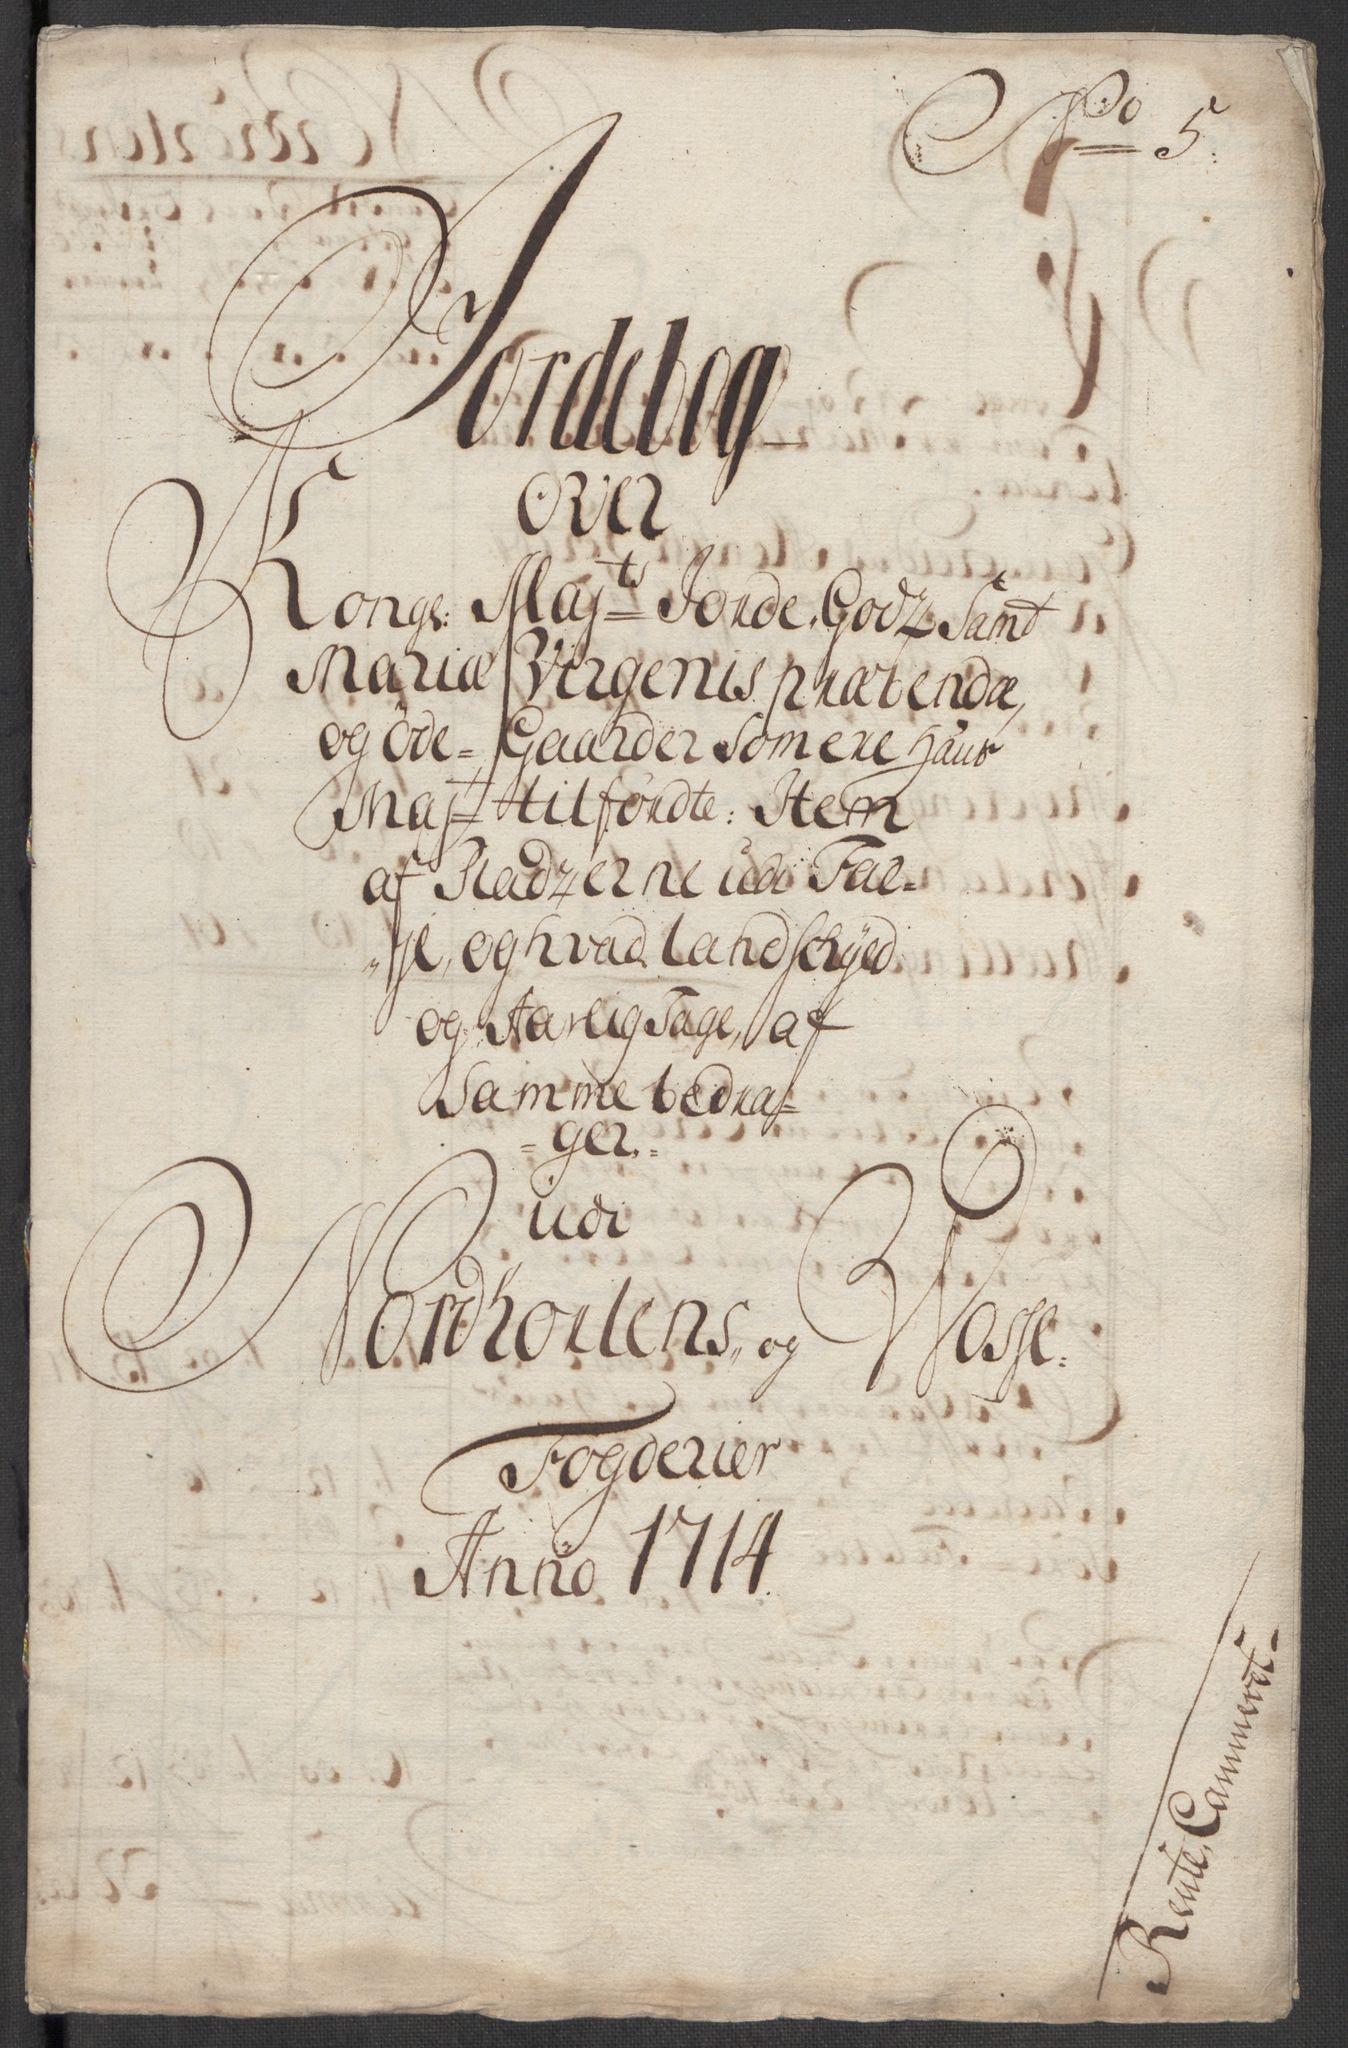 No 5.
Jordebog
over
Kongl: Maÿts Jorde, Godz Sant
Mariæ Virgenis præbendæ,
og öde-, Gaarder Som ere Hans
Maÿt tilfördte: Item
af Pladzerne udi Fal-
"se, og hvad landschÿld
og Aarlig Tage, af
Samme bedra-
-ger.
udi
Nordhorlens, og Wosse.
Fogderier
Anno 1714.
Rente, Cammeret